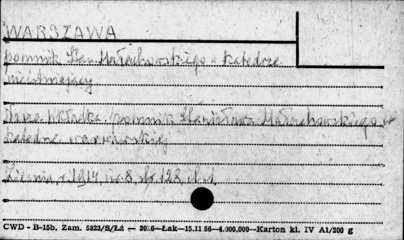 WARSZAWA
pomnik Stan. Małachowskiego w katedrze
nieistniejący
pomnik Stanisława Małachowskiego w
katedrze warszawskiej
Ziemia, r. 1914, nr 8, str. 128, il. 1
CWD - B-15b. Zam. 5823/S/Łż — 3016—Łak—15.11 56—4.000.000—Karton kl. IV A1/200 g